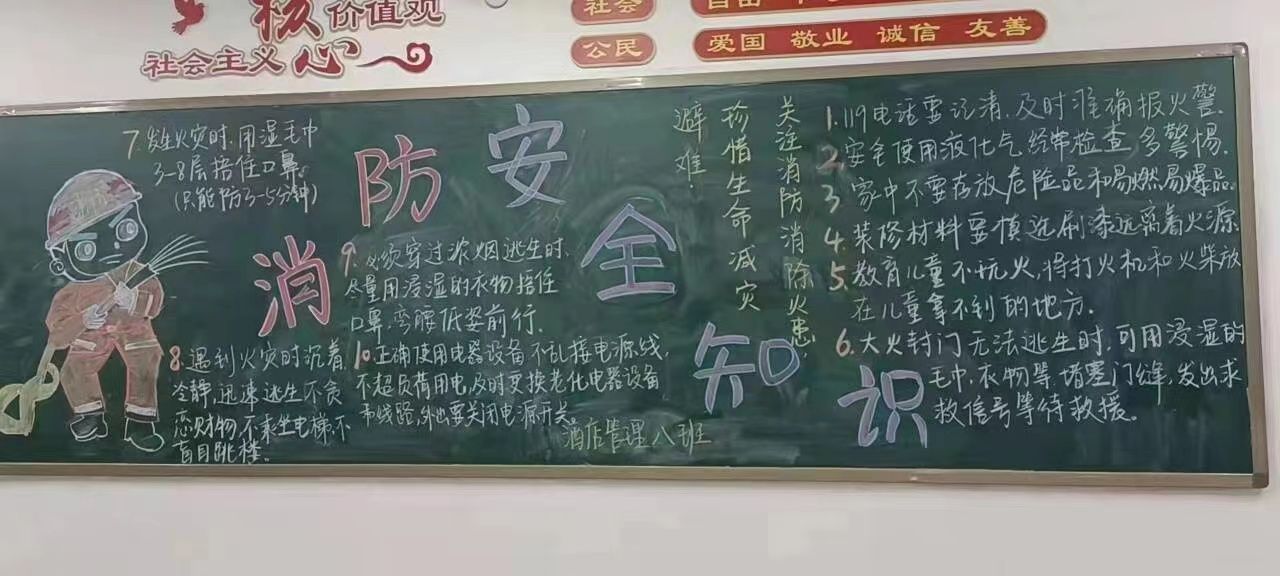 核价值观
社会主义心
社会
自由
公民
爱国 敬业 诚信 友善
消防安全知识
关注消防消除火患
珍惜生命减灾
避难!
1.119电话要记清,及时准确报火警.
2.安全使用液化气,经常检查多警惕.
3 家中不要存放危险品和易燃易爆品.
4.装修材料要慎选刷漆远离着火源
5.教育儿童不玩火,将打火机和火柴放
在儿童拿不到的地方.
6.大火封门无法逃生时,可用浸湿的
毛巾,衣物等,堵塞门缝,发出求
救信号等待救援。
7.发生火灾时,用湿毛巾
3-8层捂住口鼻。
(只能防3-5分钟)
8.遇到火灾时沉着
冷静,迅速逃生不贪
恋财物,不乘坐电梯不
盲目跳楼。
9.必须穿过浓烟逃生时,
尽量用浸湿的衣物捂住
口鼻,弯腰低姿前行.
10.正确使用电器设备不乱接电源线,
不超负荷用电,及时更换老化电器设备
和线路,外出要关闭电源开关。
酒店管理八班